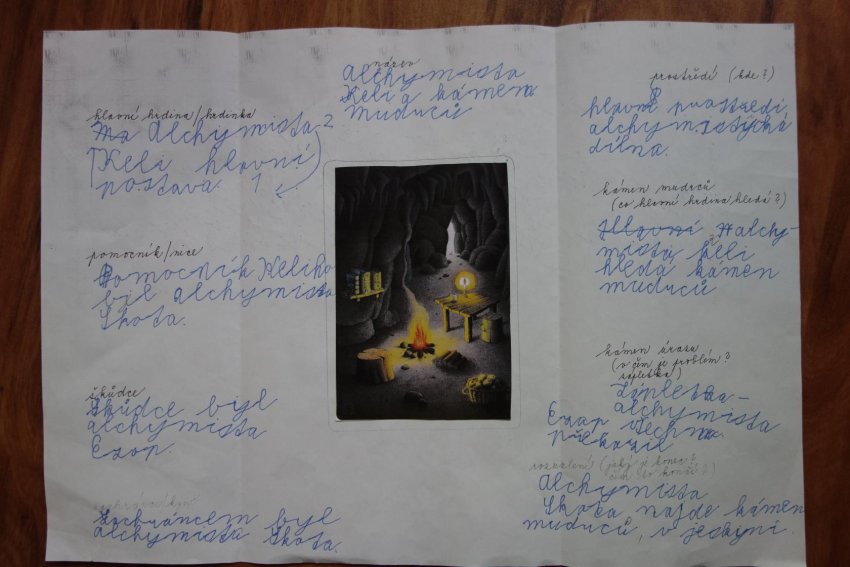 název
Alchymista
Keli a kámen
mudrců
hlavní hrdina/hrdinka
Ma Alchymista 2
Keli hlavní
postava. 1
pomocník/nice
Pomocník Keliho
byl alchymista
Skota.
škůdce
Škůdce byl
alchymista
Ezop.
Zachráncem byl
alchymista Skota.
prostředí (kde?)
hlavní prostředí
alchymistická
dílna.
kámen mudrců
(co hlavní hrdina hledá?)
Hlavní Alchy-
mista Keli
hledá kámen
mudrců
kámen úrazu
(v čem je problém?
zápletka)
Zápletka -
alchymista
Ezop všechno
překazil
rozuzlení (jaký je konec?
čím to končí?)
Alchymista
Skota najde kámen
mudrců, v jeskyni.